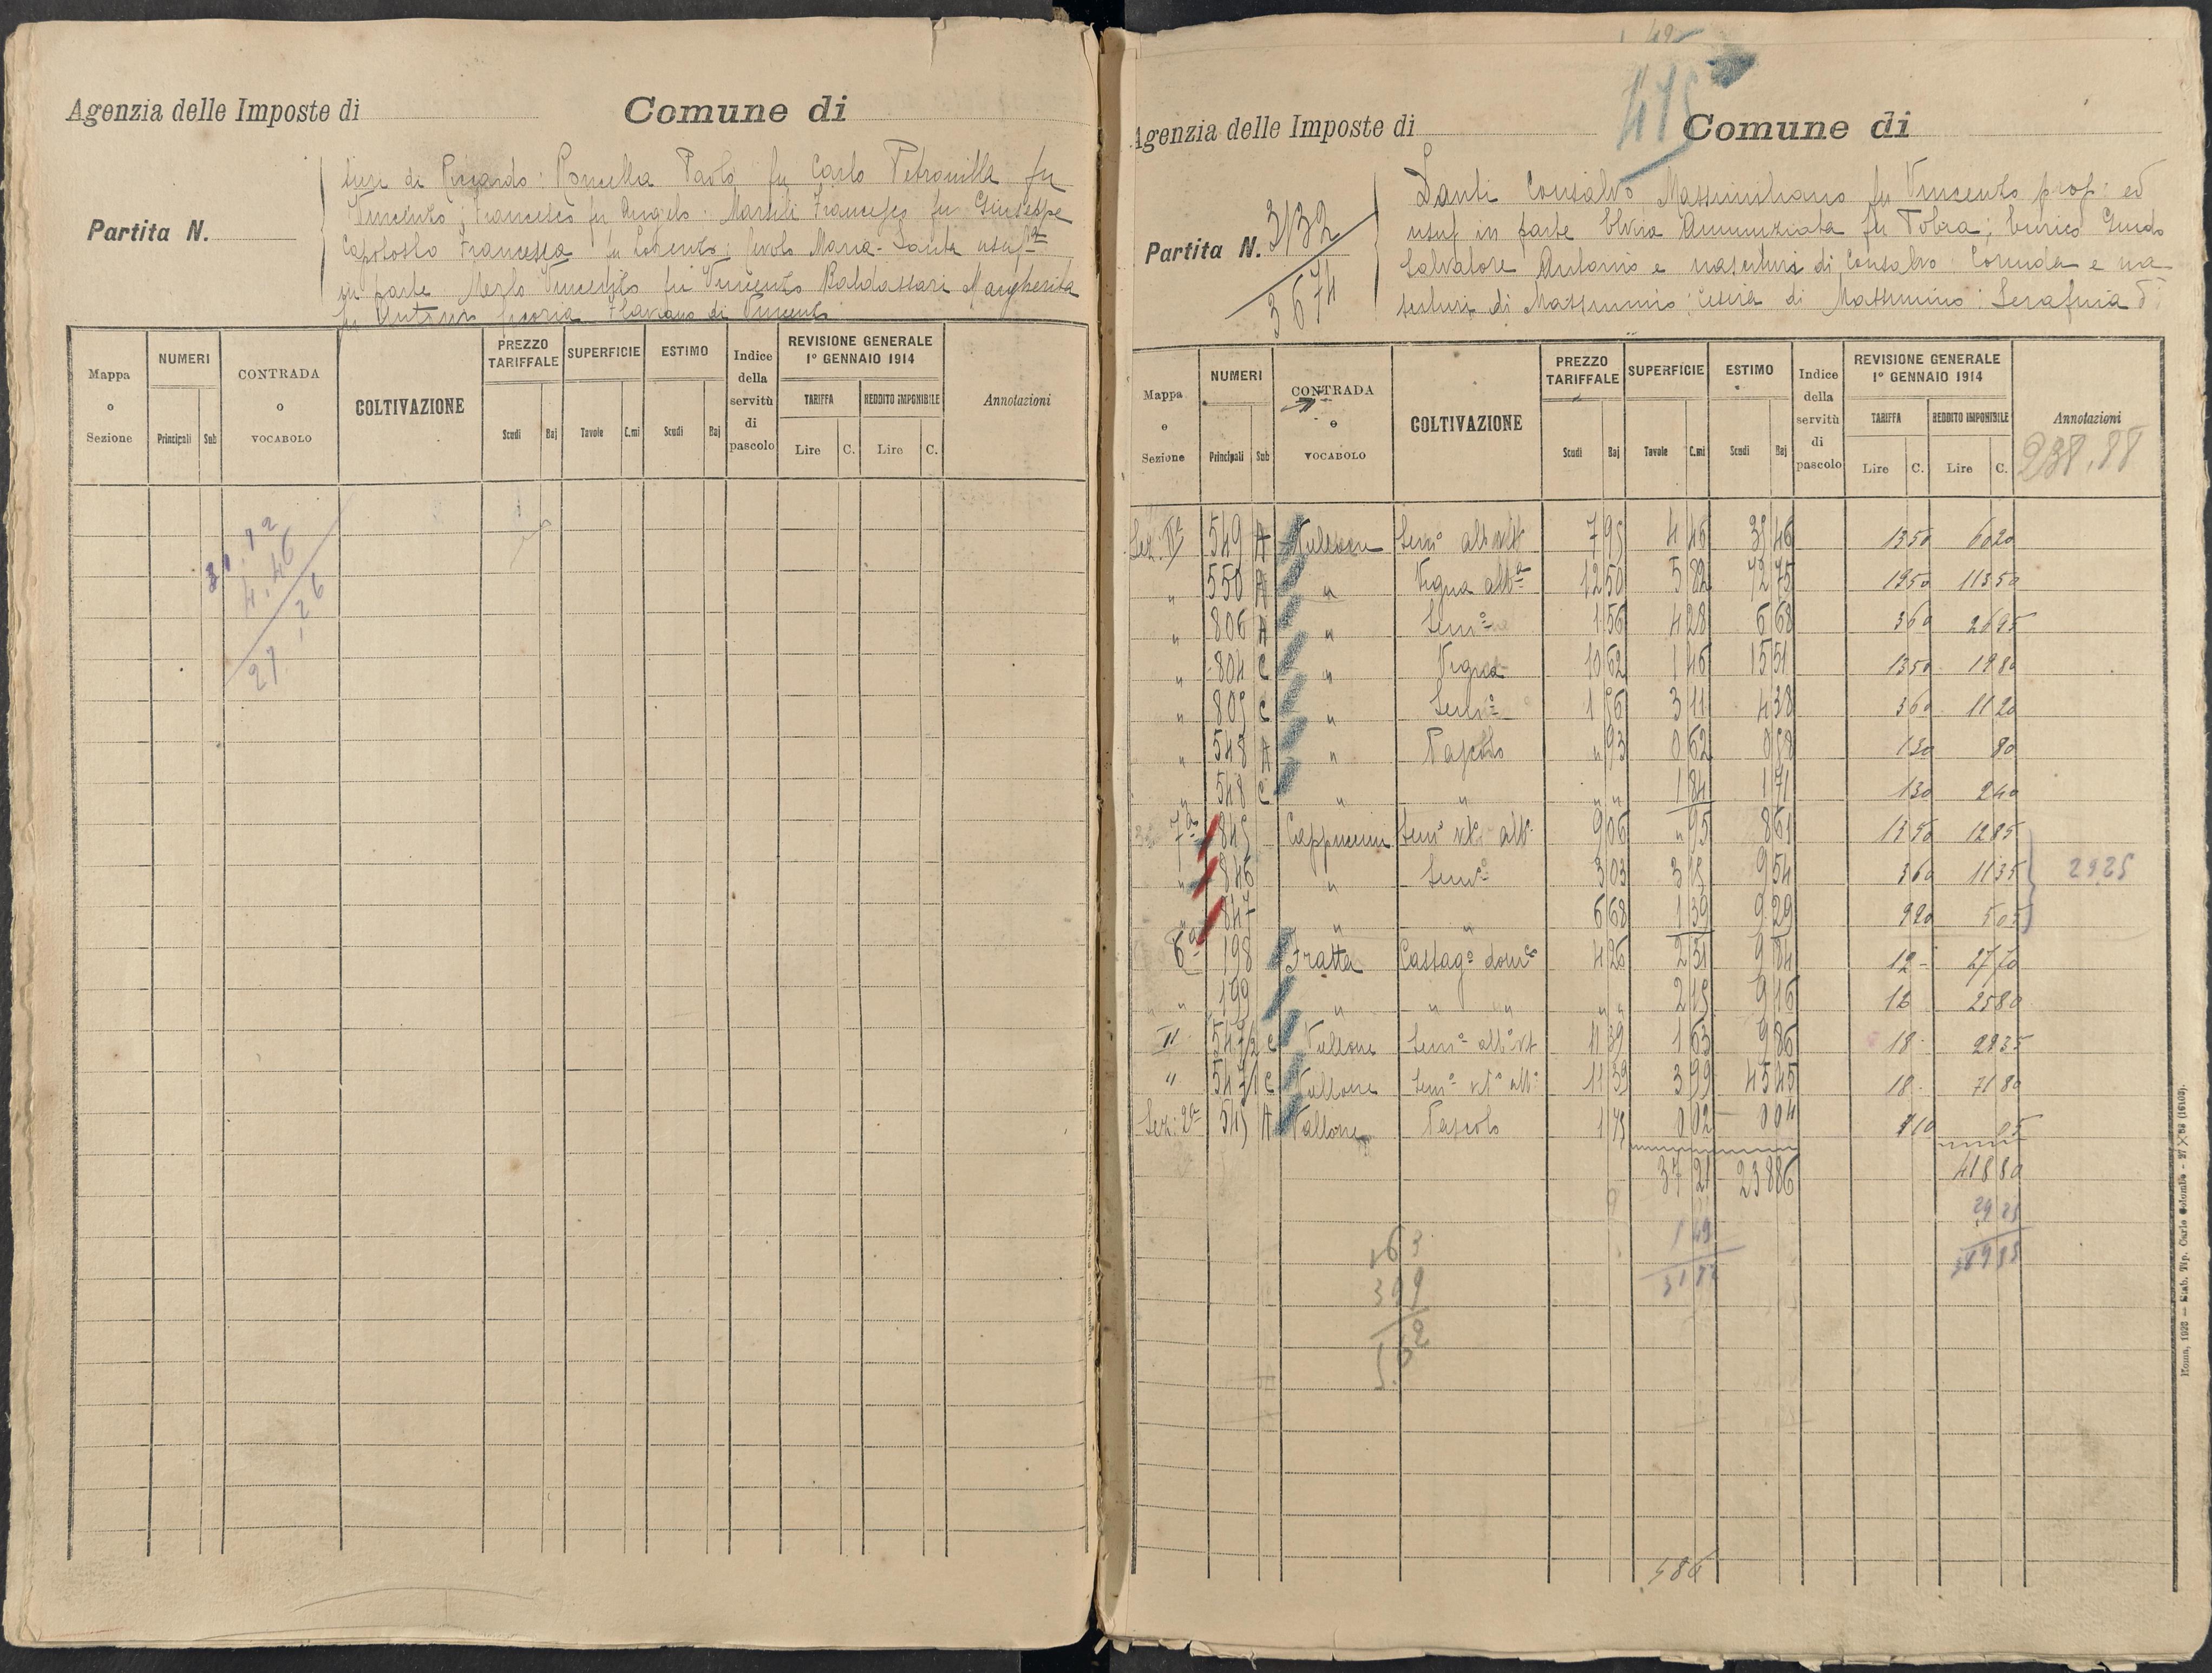 Agenzia delle Imposte di
Comune di
Partita N.
turi di Riccardo: Porcella Paolo fu Carlo Petronilla fu
Vincenzo, Francesco fu Angelo. Marsili Francesco fu Giuseppe
Francesca fu Lorenzo; Maria-Santa usuf
in parte Merlo Vincenzo fu Vincenzo Baldassari Margherita
fu Flaviano di Vincenzo
Mappa o Sezione
NUMERI
Principali Sub
CONTRADA o VOCABOLO
COLTIVAZIONE
PREZZO TARIFFALE
Scudi Baj
SUPERFICIE
Tavole C.mi
ESTIMO
Scudi Baj
Indice della servitù di pascolo
REVISIONE GENERALE
1° GENNAIO 1914
TARIFFA
Lire C.
REDDITO IMPONIBILE
Lire C.
Annotazioni
4.46
27.26
Agenzia delle Imposte di
475
Comune di
Partita N. 3132
3674
Santi Consalvo Massimiliano fu Vincenzo prop: ed
usuf in parte Elvira Annunziata fu Tobia; Enrico Guido
Salvatore Antonio e nascituri di Consalvo e na
scituri di Massimino; Cesira di Massimino: Serafina di
Mappa e Sezione
NUMERI
Principali Sub
CONTRADA o VOCABOLO
COLTIVAZIONE
PREZZO TARIFFALE
Scudi Baj
SUPERFICIE
Tavole C.mi
ESTIMO
Scudi Baj
Indice della servitù di pascolo
REVISIONE GENERALE
1° GENNAIO 1914
TARIFFA
Lire C.
REDDITO IMPONIBILE
Lire C.
Annotazioni
238.88
Sez. IIª 549 A Vallone Semº albº vtº 7 95 4 46 35 46 13 50 60 20
" 550 A " Vigna albª 12 50 5 82 72 75 19 50 113 50
" 806 A " Semº 1 56 4 28 6 68 3 60 26 95
" 804 C " Vigna 10 62 1 46 15 51 13 50 19 80
" 805 C " Semº 1 56 3 11 4 38 3 60 11 20
" 548 A " Pascolo " 93 0 62 0 58 1 30 80
" 548 C " " " " 1 84 1 71 1 30 2 40
7ª 845 Cappuccini Semº vtº albº 9 06 " 95 8 61 13 50 12 85
" 846 " Semº 3 03 3 15 9 54 3 60 11 35 29 25
" 847 " " 6 68 1 39 9 29 5 05
6ª 198 Fratta Castagº domº 4 26 2 31 9 84 12 - 27 70
" 199 " " " " " 2 15 9 16 12 25 80
II 547/2 C Vallone Semº albº vtº 11 39 1 63 9 86 18 - 28 35
" 547/1 C Vallone Semº vtº albº 11 39 3 99 45 45 18 - 71 80
Sez: 2ª 545 A Vallone Pascolo 1 75 0 02 0 04 2 10 05
37 21 238 86 418 80
29 25
389 55
1 63
3 99
5.62
Roma, 1926 — Stab. Tip. Carlo Colombo